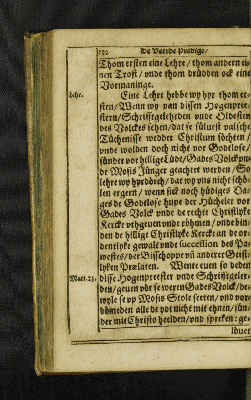 132 De Veerde Predige/
Thom ersten eine Lehre / thom andern ei-
nen Trost / vnde thom drüdden ock eine
Vormaninge.
Lehr. Eine Lehre hebbe wy hyr thom er-
sten / Wenn wy van dissen Hogenprei-
stern / Schrifftgelehrden vnde Oldesten
des Volckes sehen / dat se sülvest valsche
Tüchenisse wedder Christum söchten /
vnde wolden doch nicht vor Godtlose /
sünder vor hillige Lüde / Gades Volck vnd
de Mosis Jünger geachtet werden / So
lehre wy hyrdörch / dat wy vns nicht schö-
len ergern / wenn sick noch hüdiges Da-
ges de Godtlose hupe der Hücheler vor
Gades Volck vnde de rechte Christlyke
Kercke vthgeuen vnde röhmen / vnde bin-
den de hillige Christlyke Kercke an de or-
dentlyke gewalt vnde succession des Pa-
westes / der Bisschoppe vñ anderer Geist-
lyken Prælaten. Wente euen so deden
Matt. 23. disse Hogenpreister vnde Schrifftgeler-
den / geuen vör se weren Gades Volck / de-
wyle se vp Mosis Stole seeten / vnd vor-
dömeden alle de yot nicht mit ehnen / sün-
der mit Christo heelden / vnd spreken: ge-
löuet